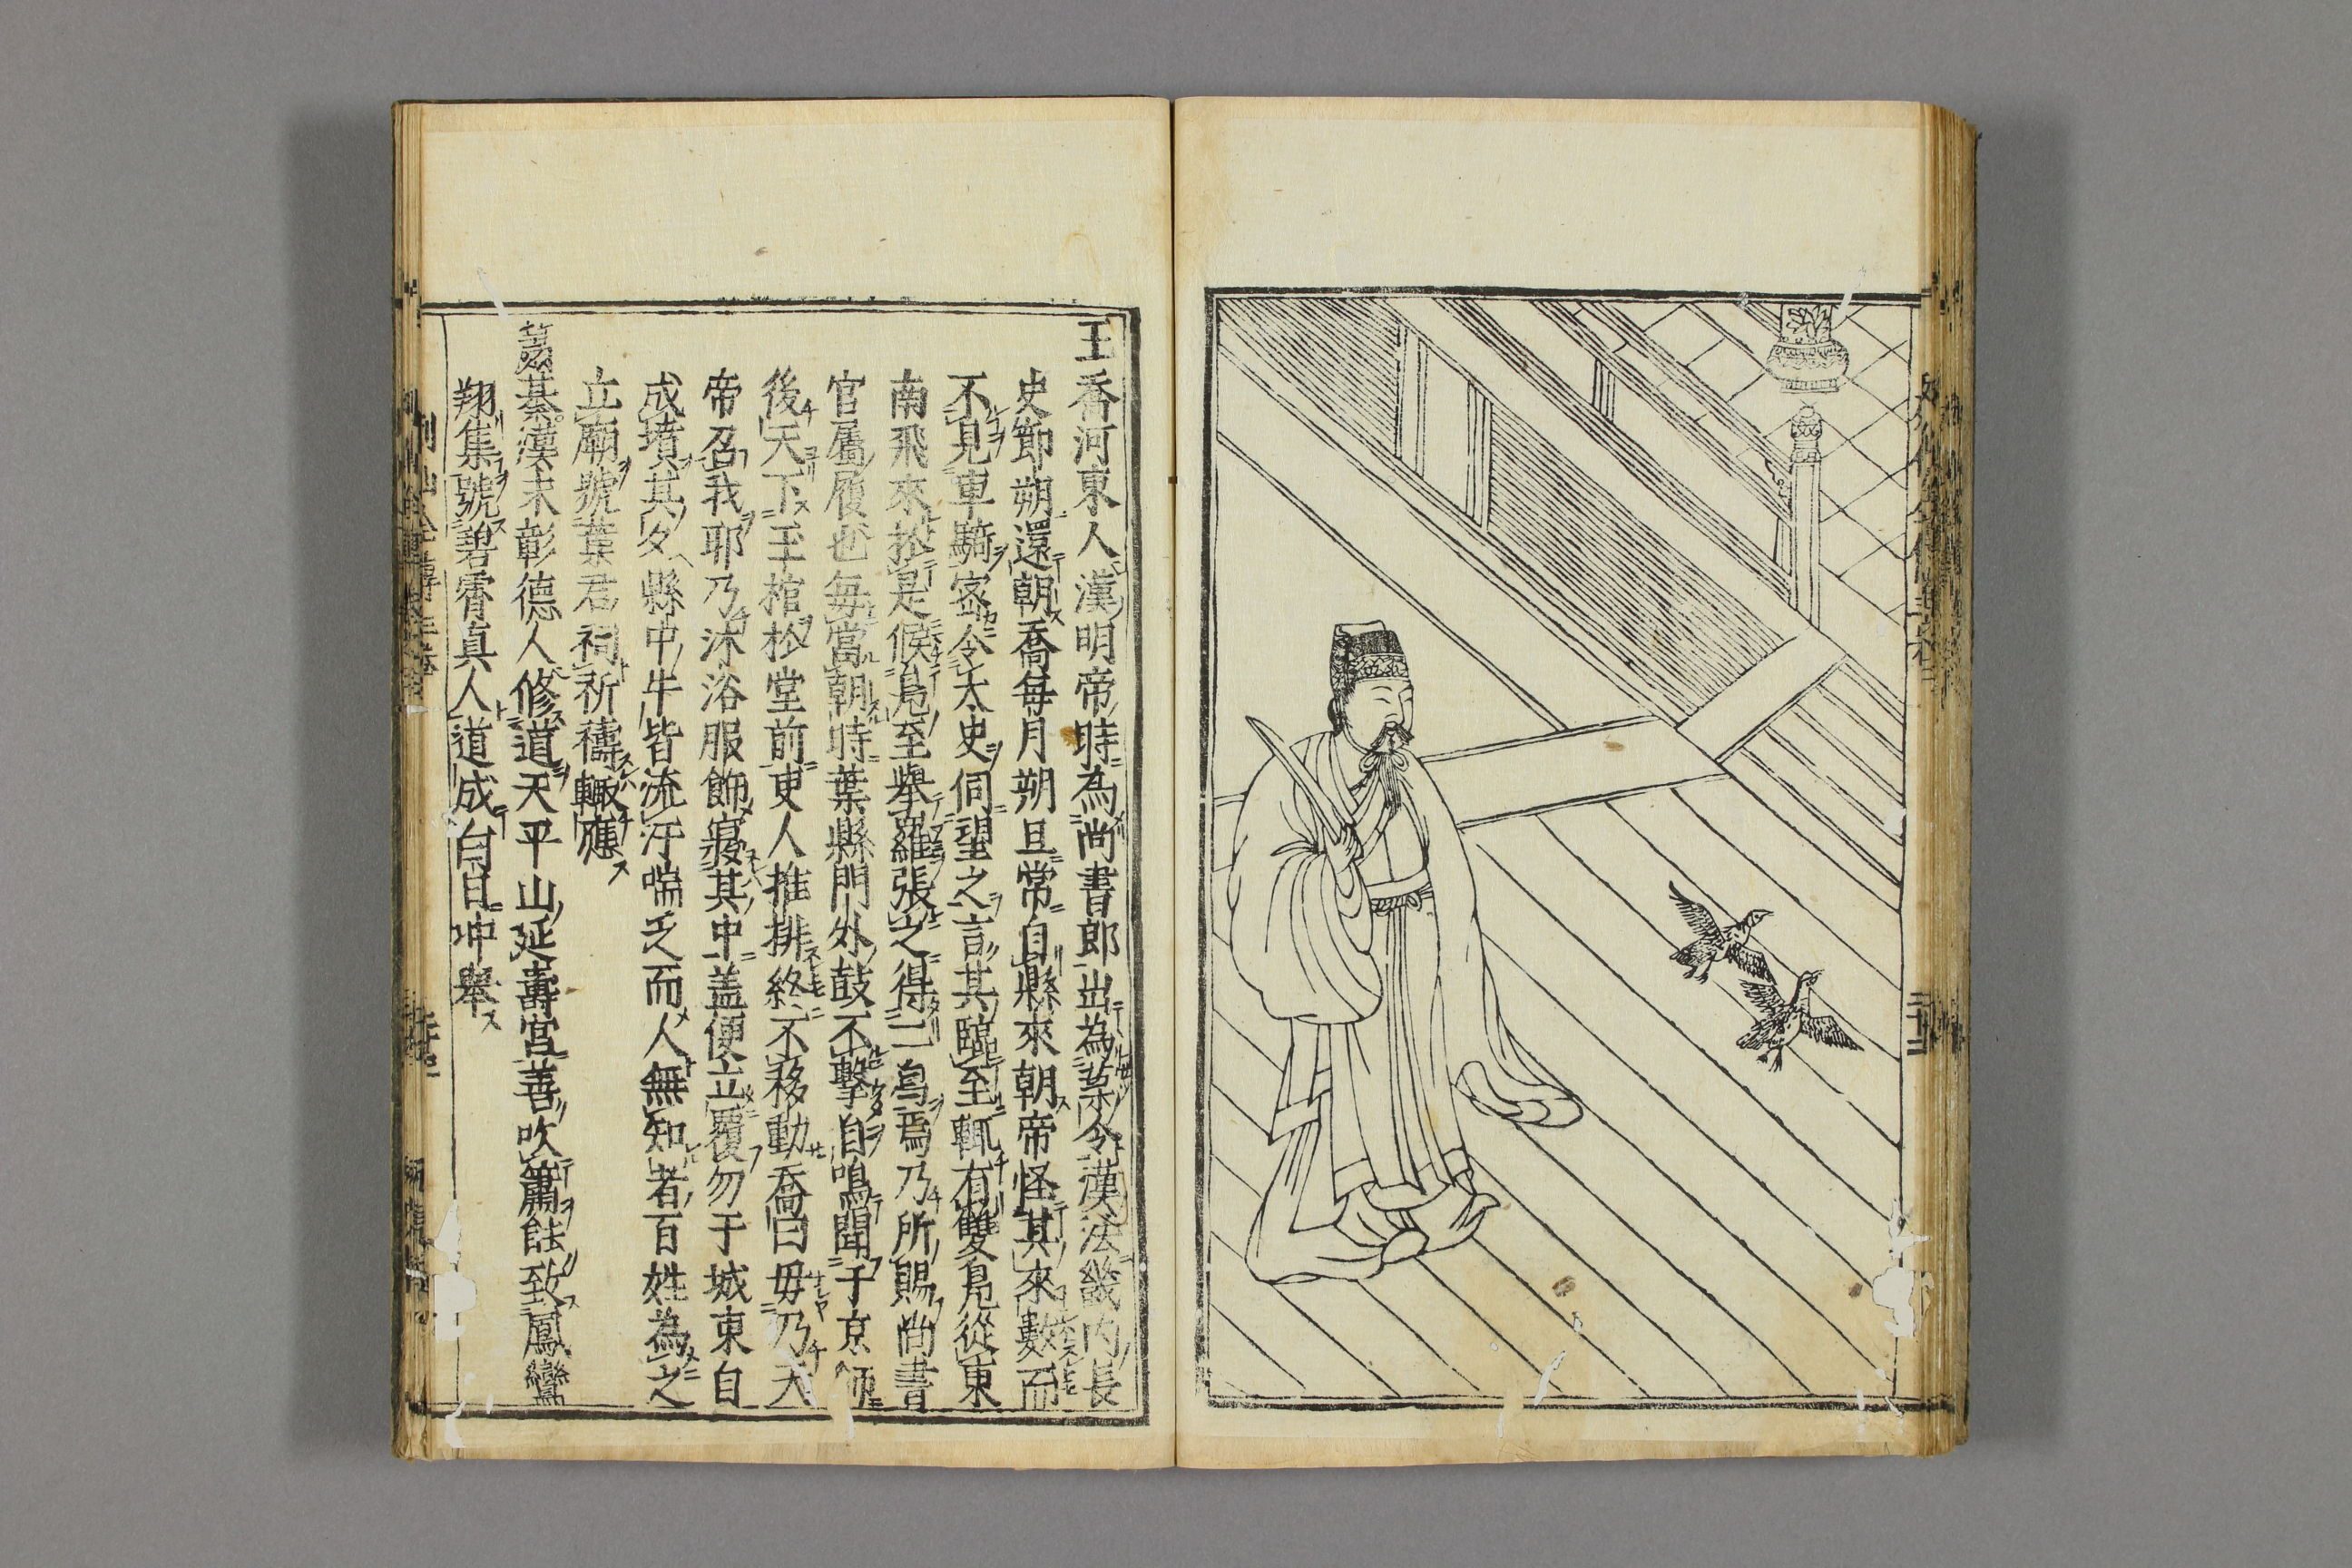 王喬河東人漢明帝時為尚書郎出為葉令漢法畿內長
吏節朔還朝喬每月朔旦常自縣來朝帝怪其來數而
不見車騎密令太史伺望之言其臨至輒有雙鳧從東
南飛來於是候鳧至舉羅張之得二舄焉乃所賜尚書
官屬履也每當朝時葉縣門外鼓不擊自鳴聞于京師
後天下玉棺於堂前吏人推排終不移動喬曰毋乃天
帝召我耶乃沐浴服飾寢其中蓋便立覆勿于城東自
成墳其夕縣中牛皆流汗喘乏而人無知者百姓為之
立廟號葉君祠祈禱輒應
綦漢末彰德人修道天平山延壽宮善吹簫能致鳳鸞
翔集號碧霄真人道成白日冲舉